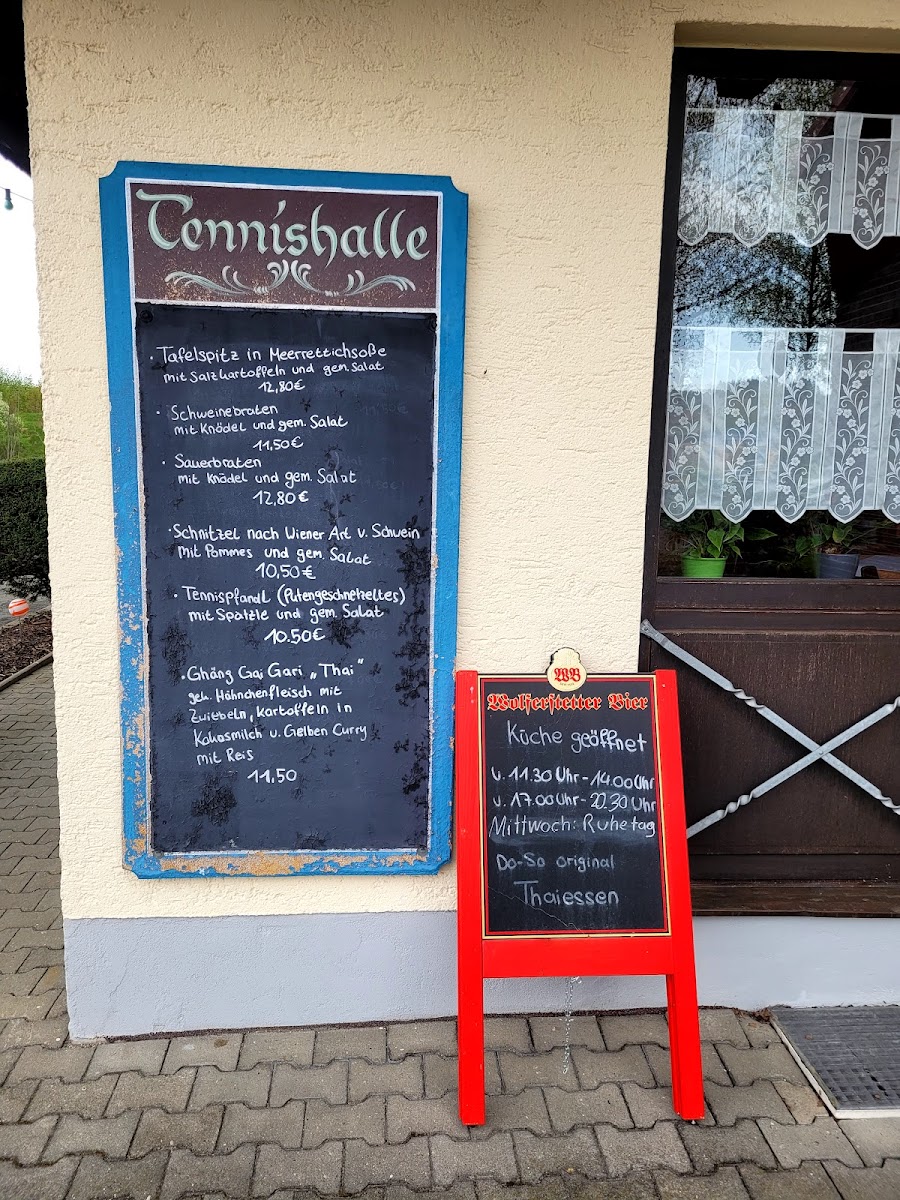 Tennishalle
· Tafelspitz in Meerrettichsoße
mit Salzkartoffeln und gem. Salat
12,80€
· Schweinebraten
mit Knödel und gem. Salat
11,50€
· Sauerbraten
mit Knödel und gem. Salat
12,80€
· Schnitzel nach Wiener Art v. Schwein
mit Pommes und gem. Salat
10,50€
· Tennispfandl (Putengeschnetzeltes)
mit Spatzle und gem. Salat
10.50€
· Ghäng Gai Gari „Thai"
geb. Höhnchenfleisch mit
Zwiebeln, Kartoffeln in
Kokosmilch u. Gelben Curry
mit Reis
11,50
WB
Wolferstetter Bier
Küche geöffnet
v. 11.30 Uhr - 14.00 Uhr
v. 17.00 Uhr - 20.30 Uhr
Mittwoch: Ruhetag
Do-So original
Thaiessen